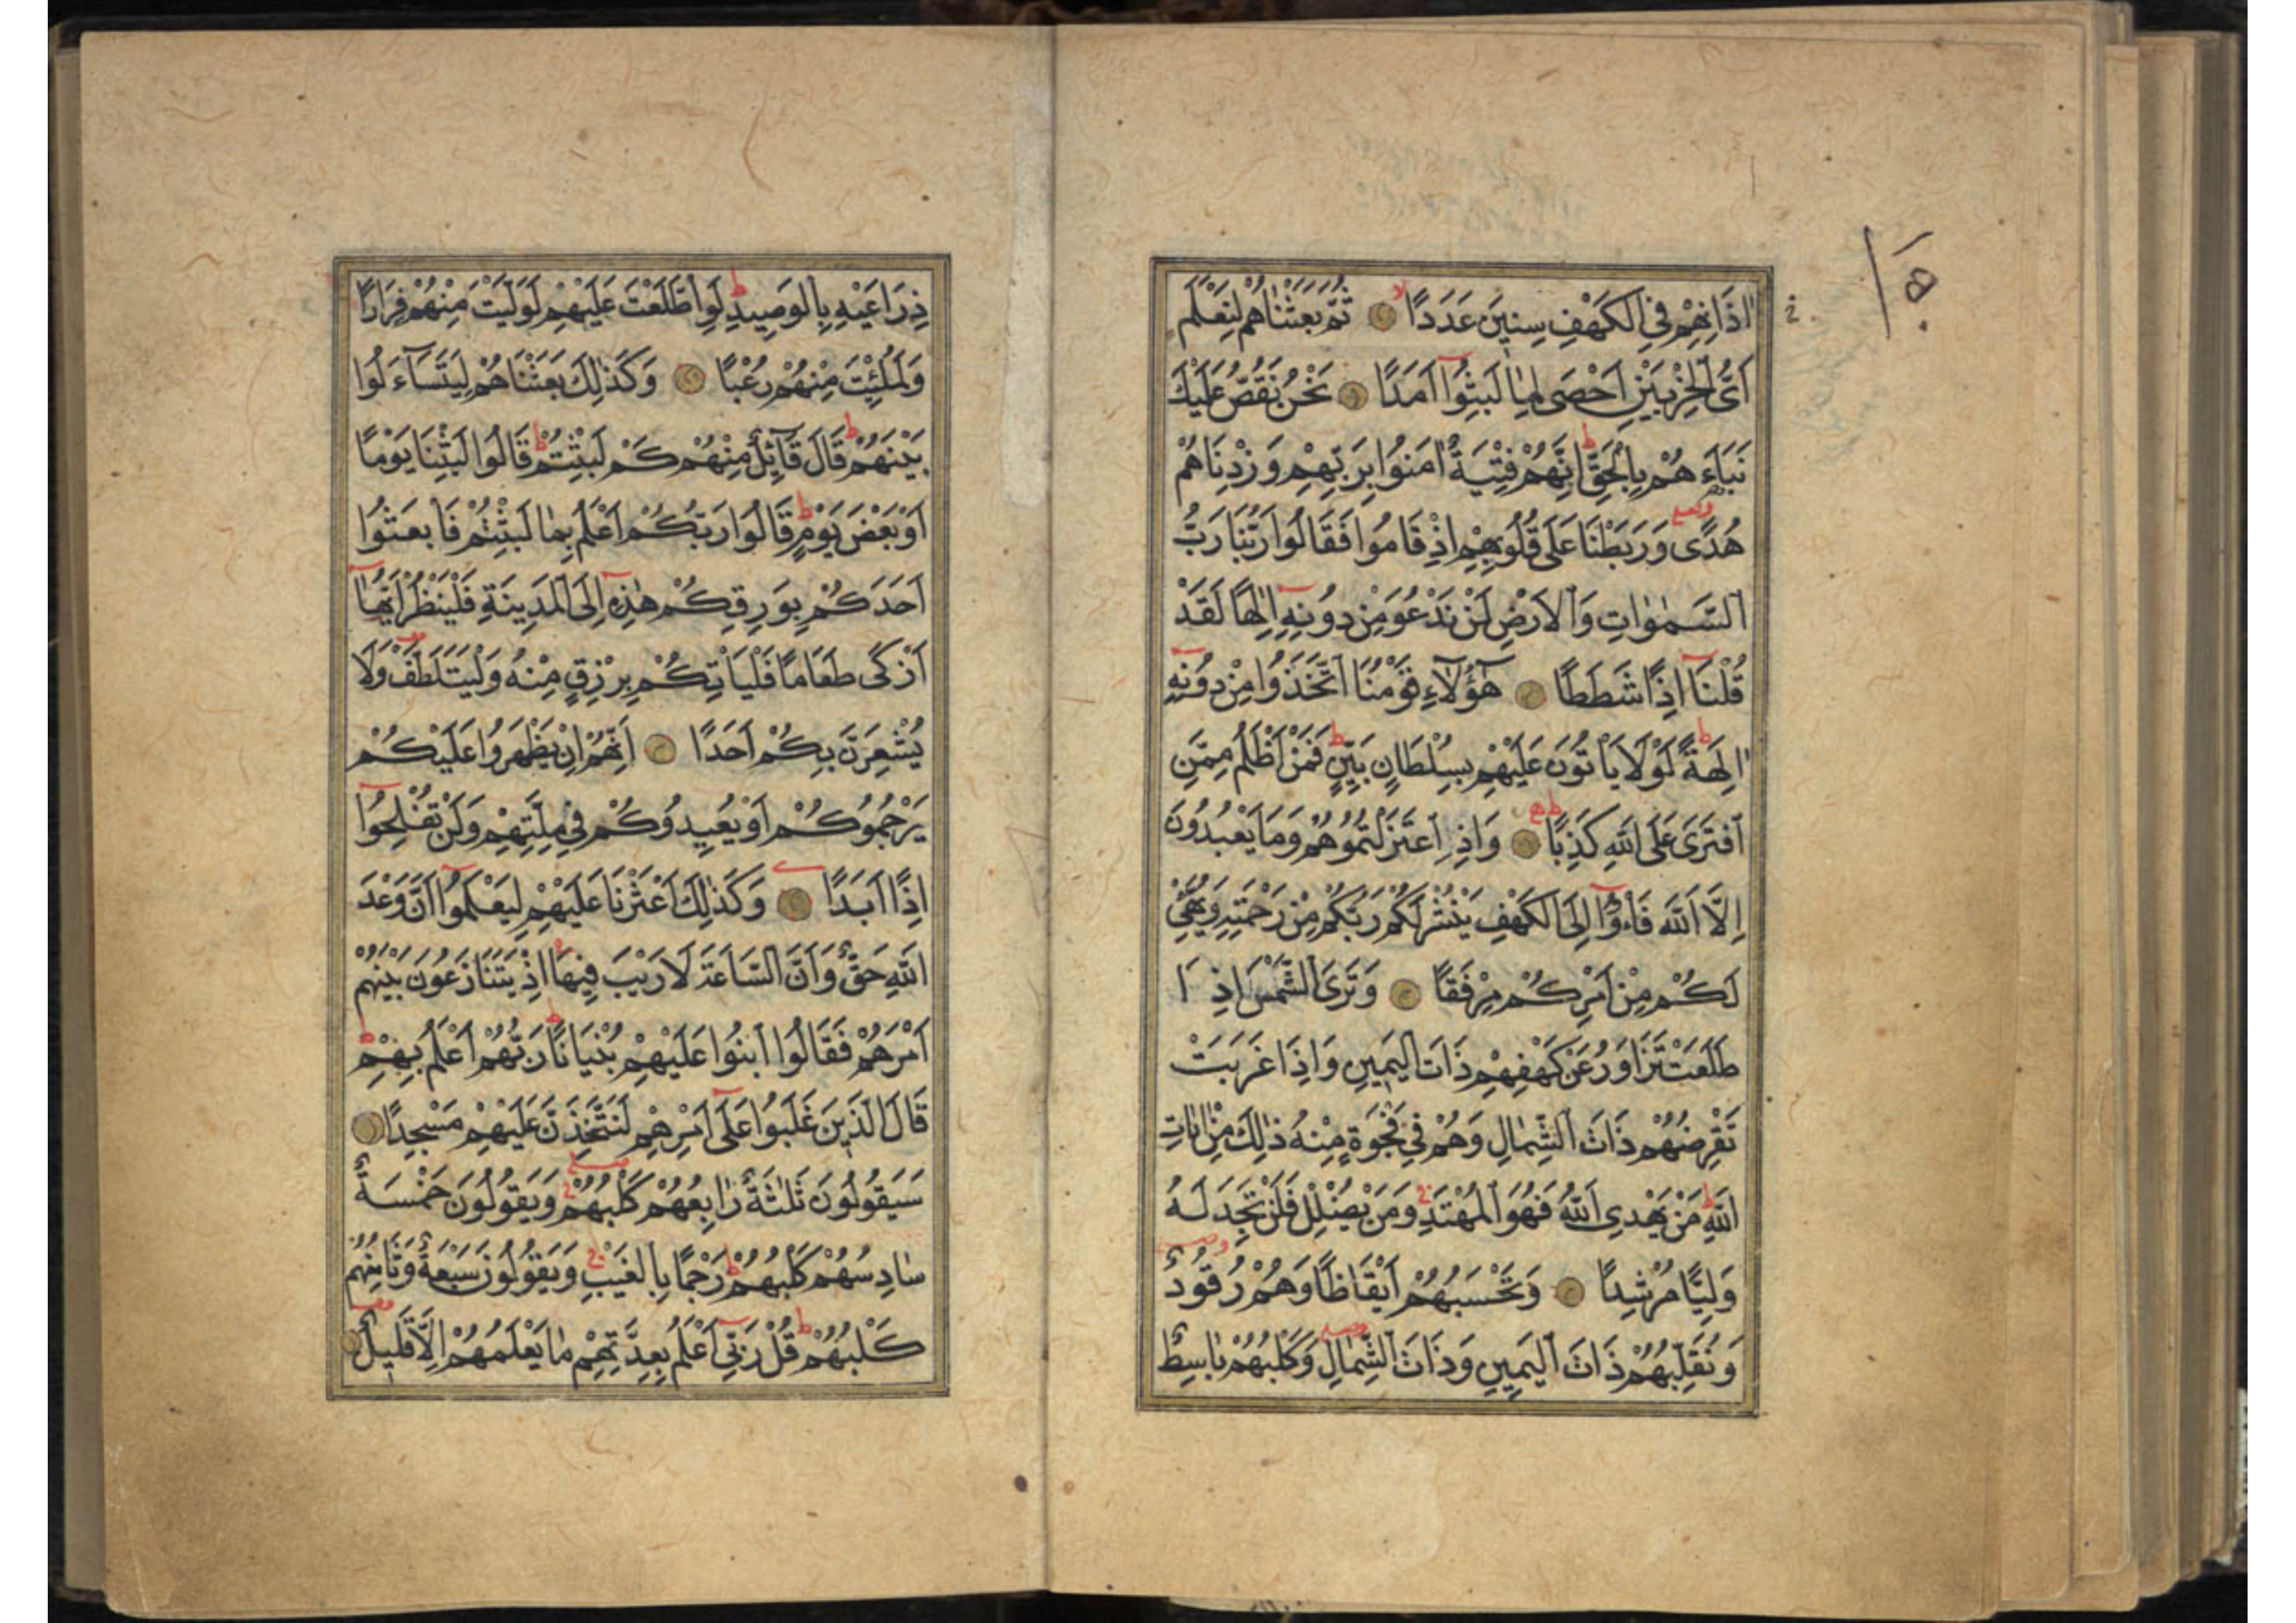 اٰذَانِهِمْ فِي الْكَهْفِ سِنِينَ عَدَدًا ثُمَّ بَعَثْنَاهُمْ لِنَعْلَمَ
اَيُّ الْحِزْبَيْنِ اَحْصَى لِمَا لَبِثُوا اَمَدًا نَحْنُ نَقُصُّ عَلَيْكَ
نَبَاَءَهُمْ بِالْحَقِّ اِنَّهُمْ فِتْيَةٌ اٰمَنُوا بِرَبِّهِمْ وَزِدْنَاهُمْ
هُدًى وَرَبَطْنَا عَلَى قُلُوبِهِمْ اِذْ قَامُوا فَقَالُوا رَبُّنَا رَبُّ
السَّمٰوَاتِ وَالْاَرْضِ لَنْ نَدْعُوَ مِنْ دُونِهِ اِلٰهًا لَقَدْ
قُلْنَا اِذًا شَطَطًا هٰٓؤُلَآءِ قَوْمُنَا اتَّخَذُوا مِنْ دُونِهِ
اٰلِهَةً لَوْلَا يَاْتُونَ عَلَيْهِمْ بِسُلْطَانٍ بَيِّنٍ فَمَنْ اَظْلَمُ مِمَّنِ
افْتَرَى عَلَى اللّٰهِ كَذِبًا وَاِذِ اعْتَزَلْتُمُوهُمْ وَمَا يَعْبُدُونَ
اِلَّا اللّٰهَ فَاْوُٓا اِلَى الْكَهْفِ يَنْشُرْ لَكُمْ رَبُّكُمْ مِنْ رَحْمَتِهِ وَيُهَيِّئْ
لَكُمْ مِنْ اَمْرِكُمْ مِرْفَقًا وَتَرَى الشَّمْسَ اِذَا
طَلَعَتْ تَزَاوَرُ عَنْ كَهْفِهِمْ ذَاتَ الْيَمِينِ وَاِذَا غَرَبَتْ
تَقْرِضُهُمْ ذَاتَ الشِّمَالِ وَهُمْ فِي فَجْوَةٍ مِنْهُ ذٰلِكَ مِنْ اٰيَاتِ
اللّٰهِ مَنْ يَهْدِي اللّٰهُ فَهُوَ الْمُهْتَدِ وَمَنْ يُضْلِلْ فَلَنْ تَجِدَ لَهُ
وَلِيًّا مُرْشِدًا وَتَحْسَبُهُمْ اَيْقَاظًا وَهُمْ رُقُودٌ
وَنُقَلِّبُهُمْ ذَاتَ الْيَمِينِ وَذَاتَ الشِّمَالِ وَكَلْبُهُمْ بَاسِطٌ
ذِرَاعَيْهِ بِالْوَصِيدِ لَوِ اطَّلَعْتَ عَلَيْهِمْ لَوَلَّيْتَ مِنْهُمْ فِرَارًا
وَلَمُلِئْتَ مِنْهُمْ رُعْبًا وَكَذٰلِكَ بَعَثْنَاهُمْ لِيَتَسَآءَلُوا
بَيْنَهُمْ قَالَ قَآئِلٌ مِنْهُمْ كَمْ لَبِثْتُمْ قَالُوا لَبِثْنَا يَوْمًا
اَوْ بَعْضَ يَوْمٍ قَالُوا رَبُّكُمْ اَعْلَمُ بِمَا لَبِثْتُمْ فَابْعَثُوا
اَحَدَكُمْ بِوَرِقِكُمْ هٰذِهِ اِلَى الْمَدِينَةِ فَلْيَنْظُرْ اَيُّهَا
اَزْكَى طَعَامًا فَلْيَاْتِكُمْ بِرِزْقٍ مِنْهُ وَلْيَتَلَطَّفْ وَلَا
يُشْعِرَنَّ بِكُمْ اَحَدًا اِنَّهُمْ اِنْ يَظْهَرُوا عَلَيْكُمْ
يَرْجُمُوكُمْ اَوْ يُعِيدُوكُمْ فِي مِلَّتِهِمْ وَلَنْ تُفْلِحُوا
اِذًا اَبَدًا وَكَذٰلِكَ اَعْثَرْنَا عَلَيْهِمْ لِيَعْلَمُوا اَنَّ وَعْدَ
اللّٰهِ حَقٌّ وَاَنَّ السَّاعَةَ لَا رَيْبَ فِيهَا اِذْ يَتَنَازَعُونَ بَيْنَهُمْ
اَمْرَهُمْ فَقَالُوا ابْنُوا عَلَيْهِمْ بُنْيَانًا رَبُّهُمْ اَعْلَمُ بِهِمْ
قَالَ الَّذِينَ غَلَبُوا عَلَى اَمْرِهِمْ لَنَتَّخِذَنَّ عَلَيْهِمْ مَسْجِدًا
سَيَقُولُونَ ثَلٰثَةٌ رَابِعُهُمْ كَلْبُهُمْ وَيَقُولُونَ خَمْسَةٌ
سَادِسُهُمْ كَلْبُهُمْ رَجْمًا بِالْغَيْبِ وَيَقُولُونَ سَبْعَةٌ وَثَامِنُهُمْ
كَلْبُهُمْ قُلْ رَبِّي اَعْلَمُ بِعِدَّتِهِمْ مَا يَعْلَمُهُمْ اِلَّا قَلِيلٌ